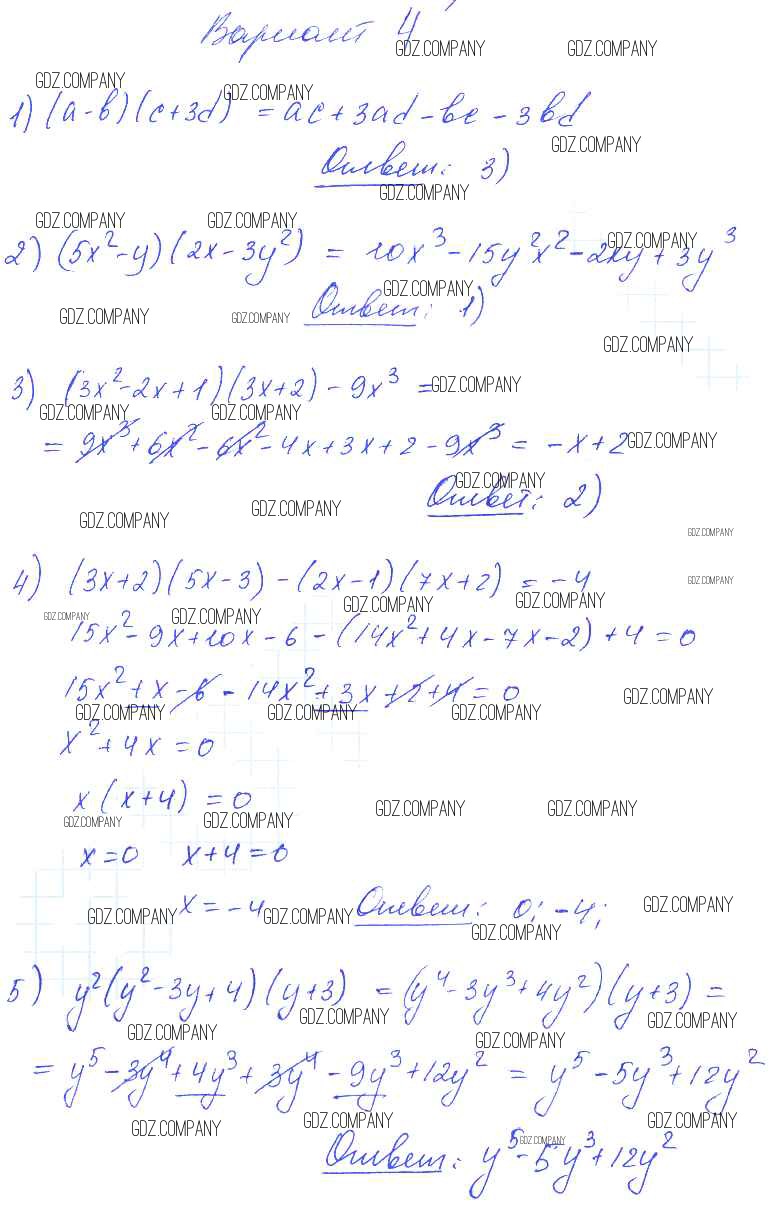 Вариант 4
GDZ.COMPANY GDZ.COMPANY
GDZ.COMPANY GDZ.COMPANY
1) (a-b)(c+3d) = ac+3ad-bc-3bd
GDZ.COMPANY
Ответ: 3)
GDZ.COMPANY
GDZ.COMPANY GDZ.COMPANY GDZ.COMPANY
2) (5x²-y)(2x-3y²) = 10x³-15y²x²-2xy+3y³
GDZ.COMPANY
Ответ: 1)
GDZ.COMPANY GDZ.COMPANY
GDZ.COMPANY
3) (3x²-2x+1)(3x+2)-9x³ =
GDZ.COMPANY
GDZ.COMPANY GDZ.COMPANY
= 9x³+6x²-6x²-4x+3x+2-9x³ = -x+2
GDZ.COMPANY
GDZ.COMPANY
Ответ: 2)
GDZ.COMPANY GDZ.COMPANY
GDZ.COMPANY
4) (3x+2)(5x-3)-(2x-1)(7x+2) = -4
GDZ.COMPANY
GDZ.COMPANY GDZ.COMPANY GDZ.COMPANY GDZ.COMPANY
15x²-9x+10x-6-(14x²+4x-7x-2)+4=0
15x²+x-6-14x²+3x+2+4=0
GDZ.COMPANY
GDZ.COMPANY GDZ.COMPANY GDZ.COMPANY
x²+4x=0
x(x+4)=0
GDZ.COMPANY GDZ.COMPANY
GDZ.COMPANY GDZ.COMPANY
x=0 x+4=0
x=-4 Ответ: 0; -4;
GDZ.COMPANY GDZ.COMPANY GDZ.COMPANY
GDZ.COMPANY
5) y²(y²-3y+4)(y+3) = (y⁴-3y³+4y²)(y+3) =
GDZ.COMPANY GDZ.COMPANY
GDZ.COMPANY GDZ.COMPANY
= y⁵-3y⁴+4y³+3y⁴-9y³+12y² = y⁵-5y³+12y²
GDZ.COMPANY GDZ.COMPANY GDZ.COMPANY
GDZ.COMPANY
Ответ: y⁵-5y³+12y²